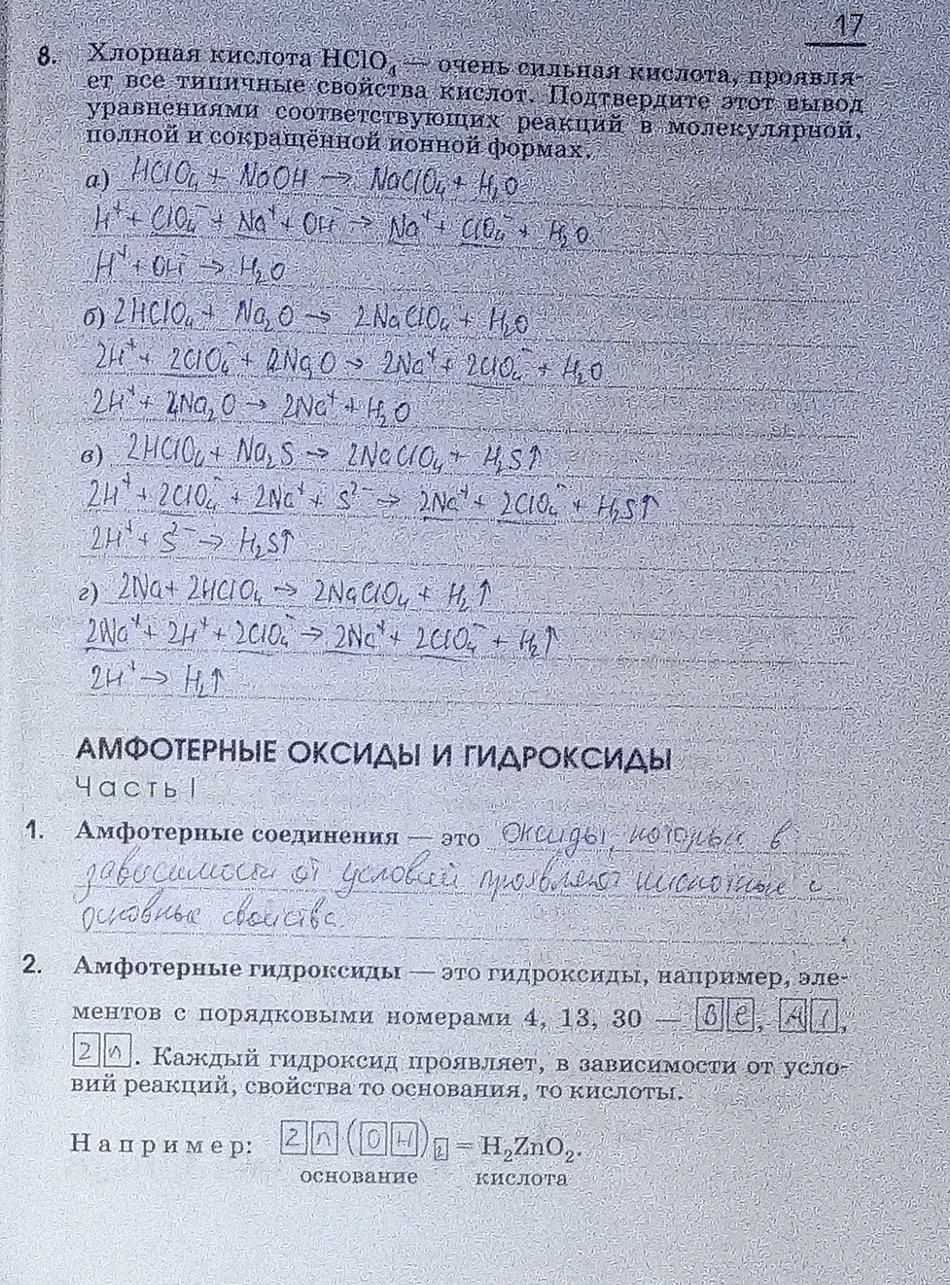 17
8. Хлорная кислота HClO₄ — очень сильная кислота, проявля-
ет все типичные свойства кислот. Подтвердите этот вывод
уравнениями соответствующих реакций в молекулярной,
полной и сокращённой ионной формах.
а) HClO₄ + NaOH → NaClO₄ + H₂O
H⁺ + ClO₄⁻ + Na⁺ + OH⁻ → Na⁺ + ClO₄⁻ + H₂O
H⁺ + OH⁻ → H₂O
б) 2HClO₄ + Na₂O → 2NaClO₄ + H₂O
2H⁺ + 2ClO₄⁻ + Na₂O → 2Na⁺ + 2ClO₄⁻ + H₂O
2H⁺ + Na₂O → 2Na⁺ + H₂O
в) 2HClO₄ + Na₂S → 2NaClO₄ + H₂S↑
2H⁺ + 2ClO₄⁻ + 2Na⁺ + S²⁻ → 2Na⁺ + 2ClO₄⁻ + H₂S↑
2H⁺ + S²⁻ → H₂S↑
г) 2Na + 2HClO₄ → 2NaClO₄ + H₂↑
2Na⁺ + 2H⁺ + 2ClO₄⁻ → 2Na⁺ + 2ClO₄⁻ + H₂↑
2H⁺ → H₂↑
АМФОТЕРНЫЕ ОКСИДЫ И ГИДРОКСИДЫ
Часть I
1. Амфотерные соединения — это оксиды, которые в
зависимости от условий проявляют кислотные и
основные свойства.
2. Амфотерные гидроксиды — это гидроксиды, например, эле-
ментов с порядковыми номерами 4, 13, 30 — Be, Al,
Zn. Каждый гидроксид проявляет, в зависимости от усло-
вий реакций, свойства то основания, то кислоты.
Например: Zn(OH)₂ = H₂ZnO₂.
основание кислота